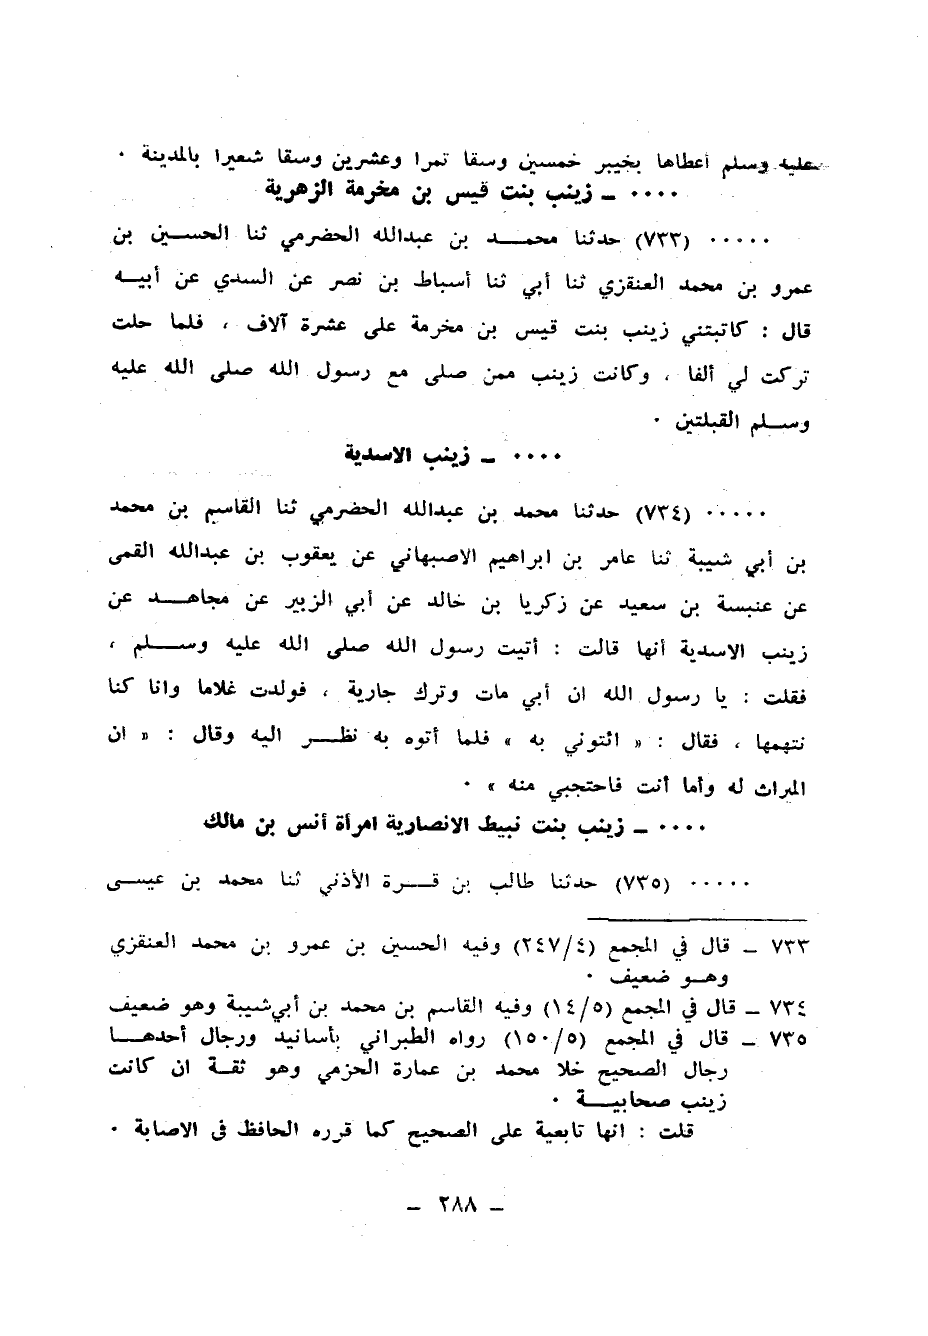 عليه وسلم أعطاها بخيبر خمسين وسقا تمرا وعشرين وسقا شعيرا بالمدينة ٠
٠٠٠٠ ـ زينب بنت قيس بن مخرمة الزهرية
٠٠٠٠٠ (٧٣٣) حدثنا محمـــد بن عبدالله الحضرمي ثنا الحســين بن
عمرو بن محمد العنقزي ثنا أبي ثنا أسباط بن نصر عن السدي عن أبيــه
قال : كاتبتني زينب بنت قيس بن مخرمة على عشرة آلاف ، فلما حلت
تركت لي ألفا ، وكانت زينب ممن صلى مع رسول الله صلى الله عليه
وســلم القبلتين ٠
٠٠٠٠ ـ زينب الاسدية
٠٠٠٠٠ (٧٣٤) حدثنا محمد بن عبدالله الحضرمي ثنا القاسم بن محمد
بن أبي شيبة ثنا عامر بن ابراهيم الاصبهاني عن يعقوب بن عبدالله القمى
عن عنبسة بن سعيد عن زكريا بن خالد عن أبي الزبير عن مجاهــد عن
زينب الاسدية أنها قالت : أتيت رسول الله صلى الله عليه وســـلم ،
فقلت : يا رسول الله ان أبي مات وترك جارية ، فولدت غلاما وانا كنا
نتهمها ، فقال : « ائتوني به » فلما أتوه به نظــر اليه وقال : « ان
المراث له وأما أنت فاحتجبي منه » ٠
٠٠٠٠ ـ زينب بنت نبيط الانصارية امرأة أنس بن مالك
٠٠٠٠٠ (٧٣٥) حدثنا طالب بن قــرة الأذني ثنا محمد بن عيســى
٧٣٣ ـ قال في المجمع (٢٤٧/٤) وفيه الحسين بن عمرو بن محمد العنقزي
وهــو ضعيف ٠
٧٣٤ ـ قال في المجمع (١٤/٥) وفيه القاسم بن محمد بن أبي شيبة وهو ضعيف
٧٣٥ ـ قال في المجمع (١٥٠/٥) رواه الطبراني بأسانيد ورجال أحدهــا
رجال الصحيح خلا محمد بن عمارة الحزمي وهو ثقــة ان كانت
زينب صحابيــة ٠
قلت : انها تابعية على الصحيح كما قرره الحافظ في الاصابة ٠
ـ ٢٨٨ ـ